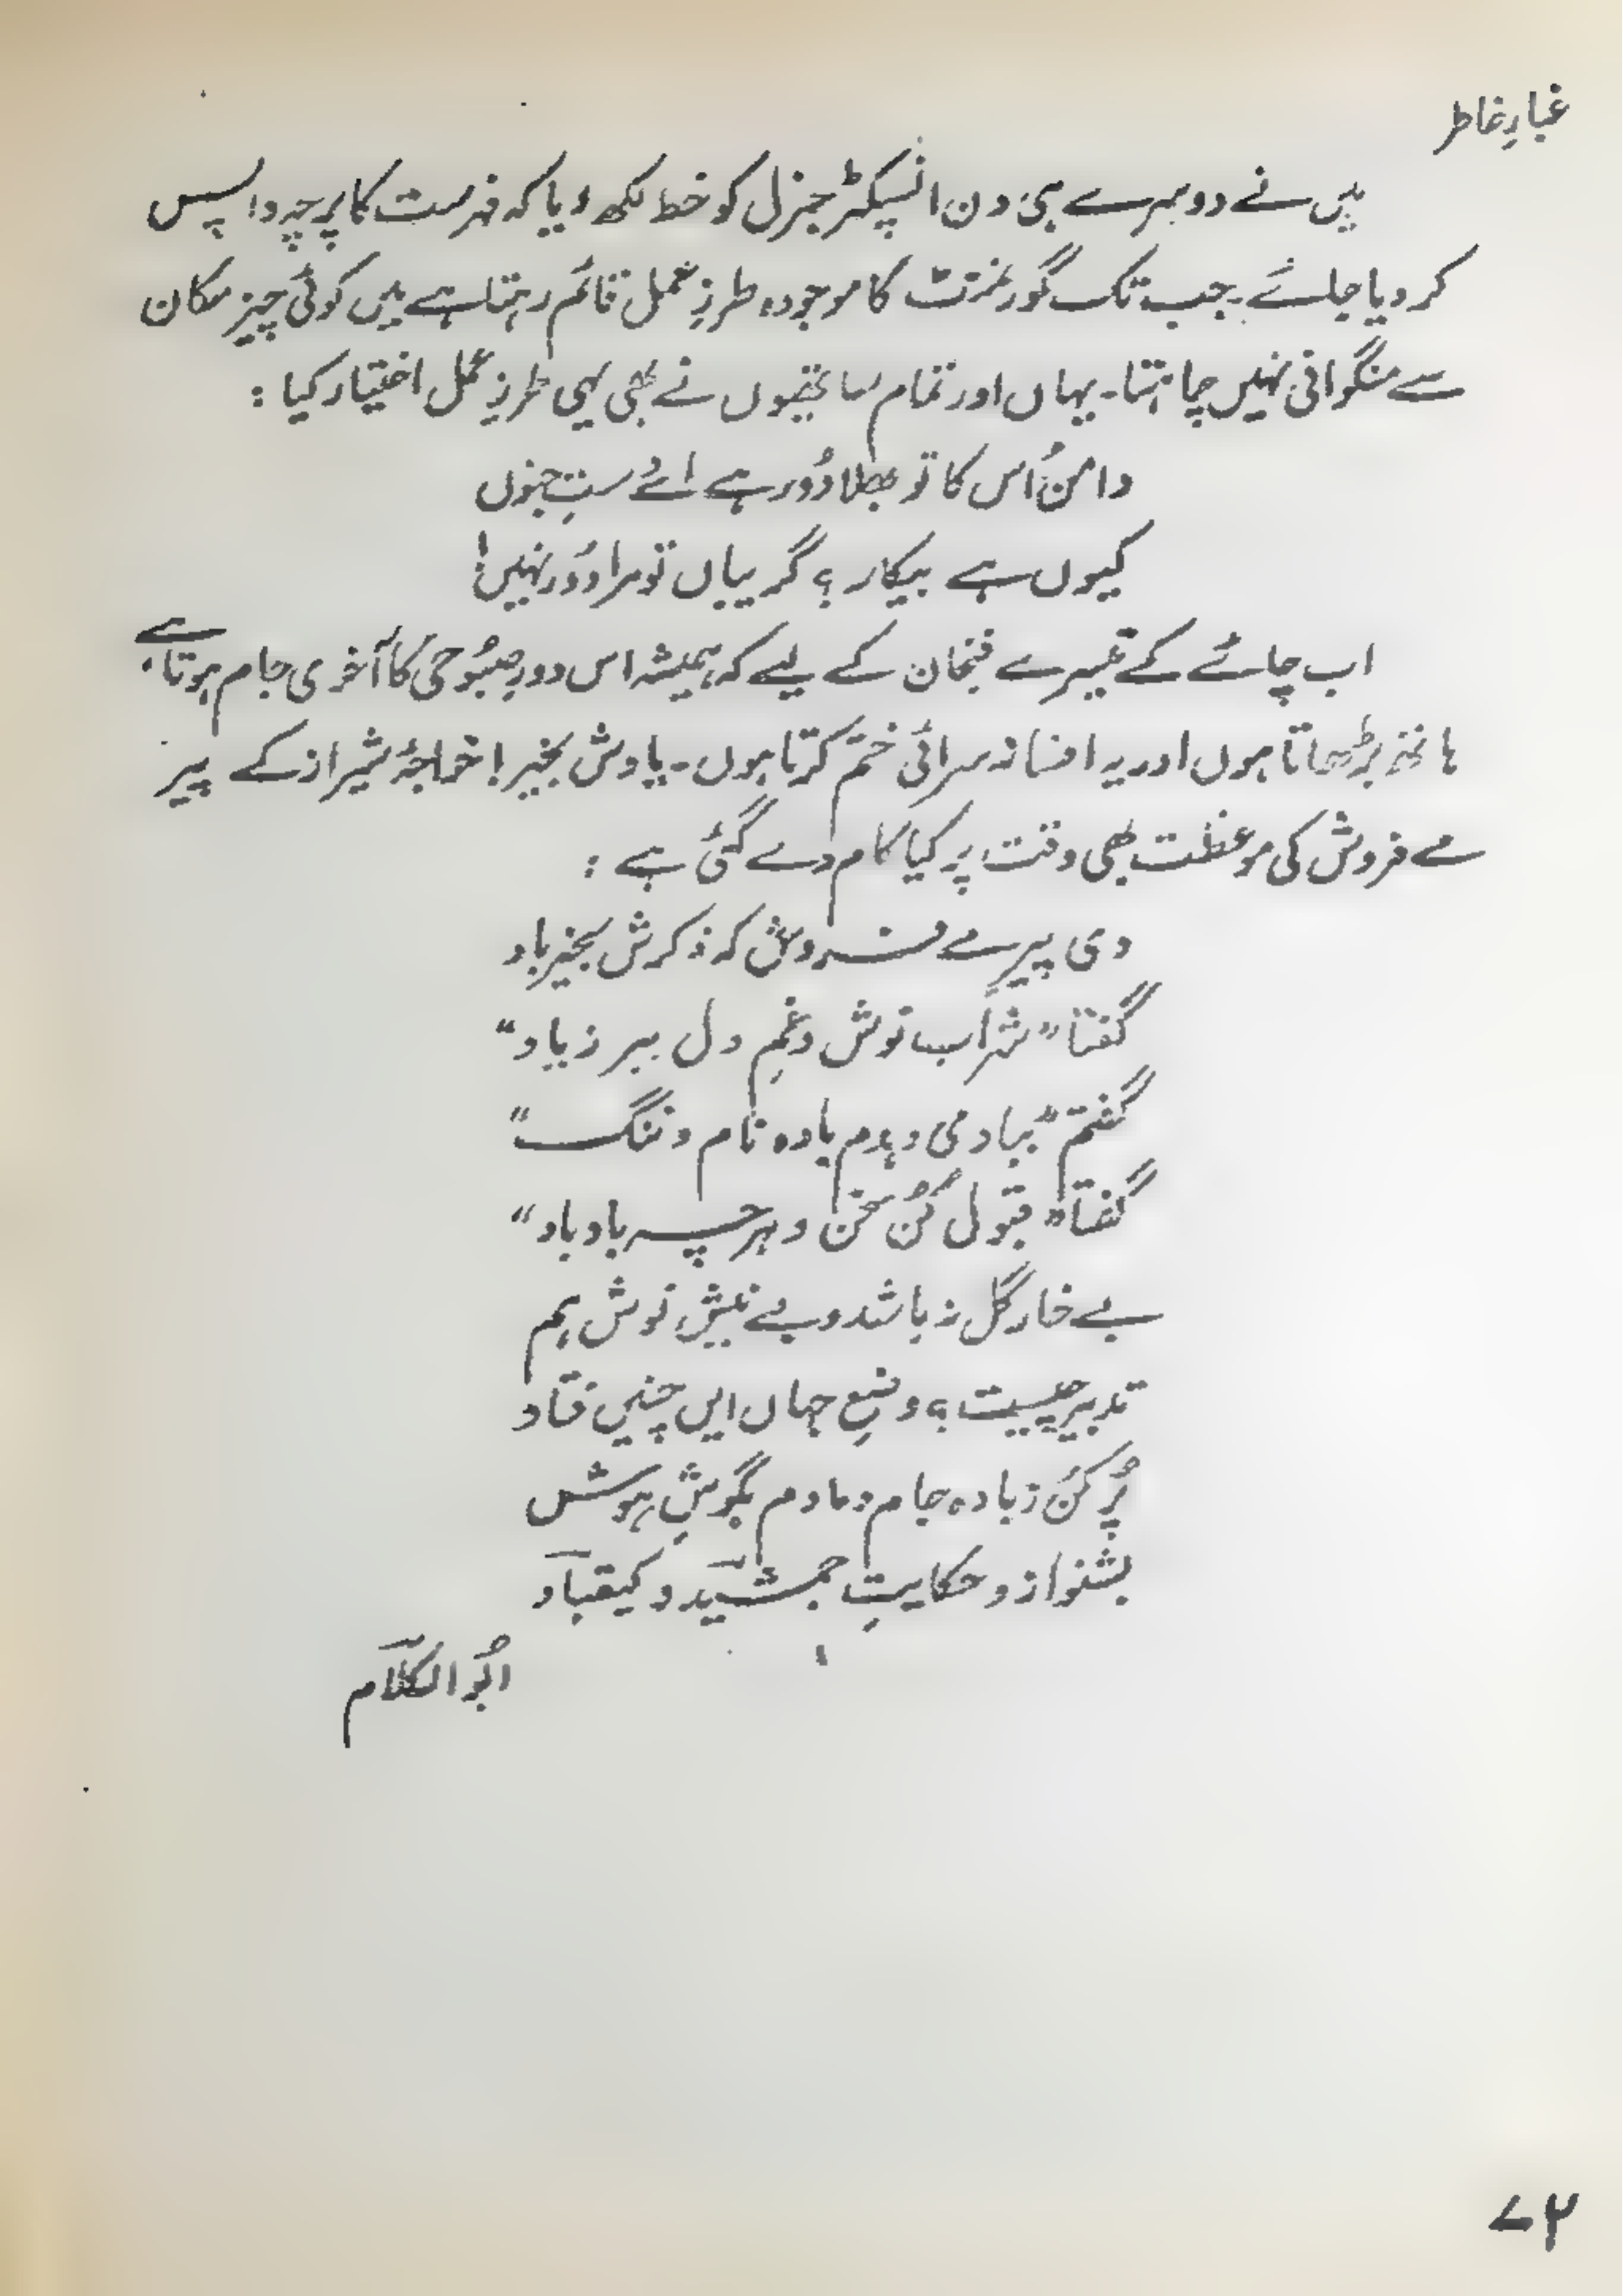 غبارِ خاطر
میں نے دوسرے ہی دن انسپکٹر جنرل کو خط لکھ دیا کہ فہرست کا پرچہ واپس
کر دیا جائے۔ جب تک گورنمنٹ کا موجودہ طرزِ عمل قائم رہتا ہے میں کوئی چیز مکان
سے منگوانی نہیں چاہتا۔ یہاں اور تمام ساتھیوں نے بھی یہی طرزِ عمل اختیار کیا :
دامن اُس کا تو بھلا دُور ہے اے دستِ جنوں
کیوں ہے بیکار؟ گریباں تو مرا دُور نہیں!
اب چائے کے تیسرے فنجان کے لیے کہ ہمیشہ اس دورِ صبُوحی کا آخری جام ہوتا ہے،
ہاتھ بڑھاتا ہوں اور یہ افسانہ سرائی ختم کرتا ہوں۔ یادش بخیر! خواجۂ شیراز کے پیر
مے فروش کی موعظت بھی وقت پر کیا کام دے گئی ہے :
دی پیرِ مے فروش کہ ذکرش بخیر باد
گفتا "شراب نوش و غمِ دل ببر ز یاد"
گفتم "بباد می دہدم بادہ نام و ننگ"
گفتا "قبول کُن سخن و ہرچہ باد باد"
بے خار گل نہ باشد و بے نیش نوش ہم
تدبیر چیست؟ وضعِ جہاں ایں چنیں فتاد
پُر کُن ز بادہ جام و مادم بگوشِ ہوش
بشنو از و حکایتِ جمشید و کیقباد
ابُو الکلام
۷۲